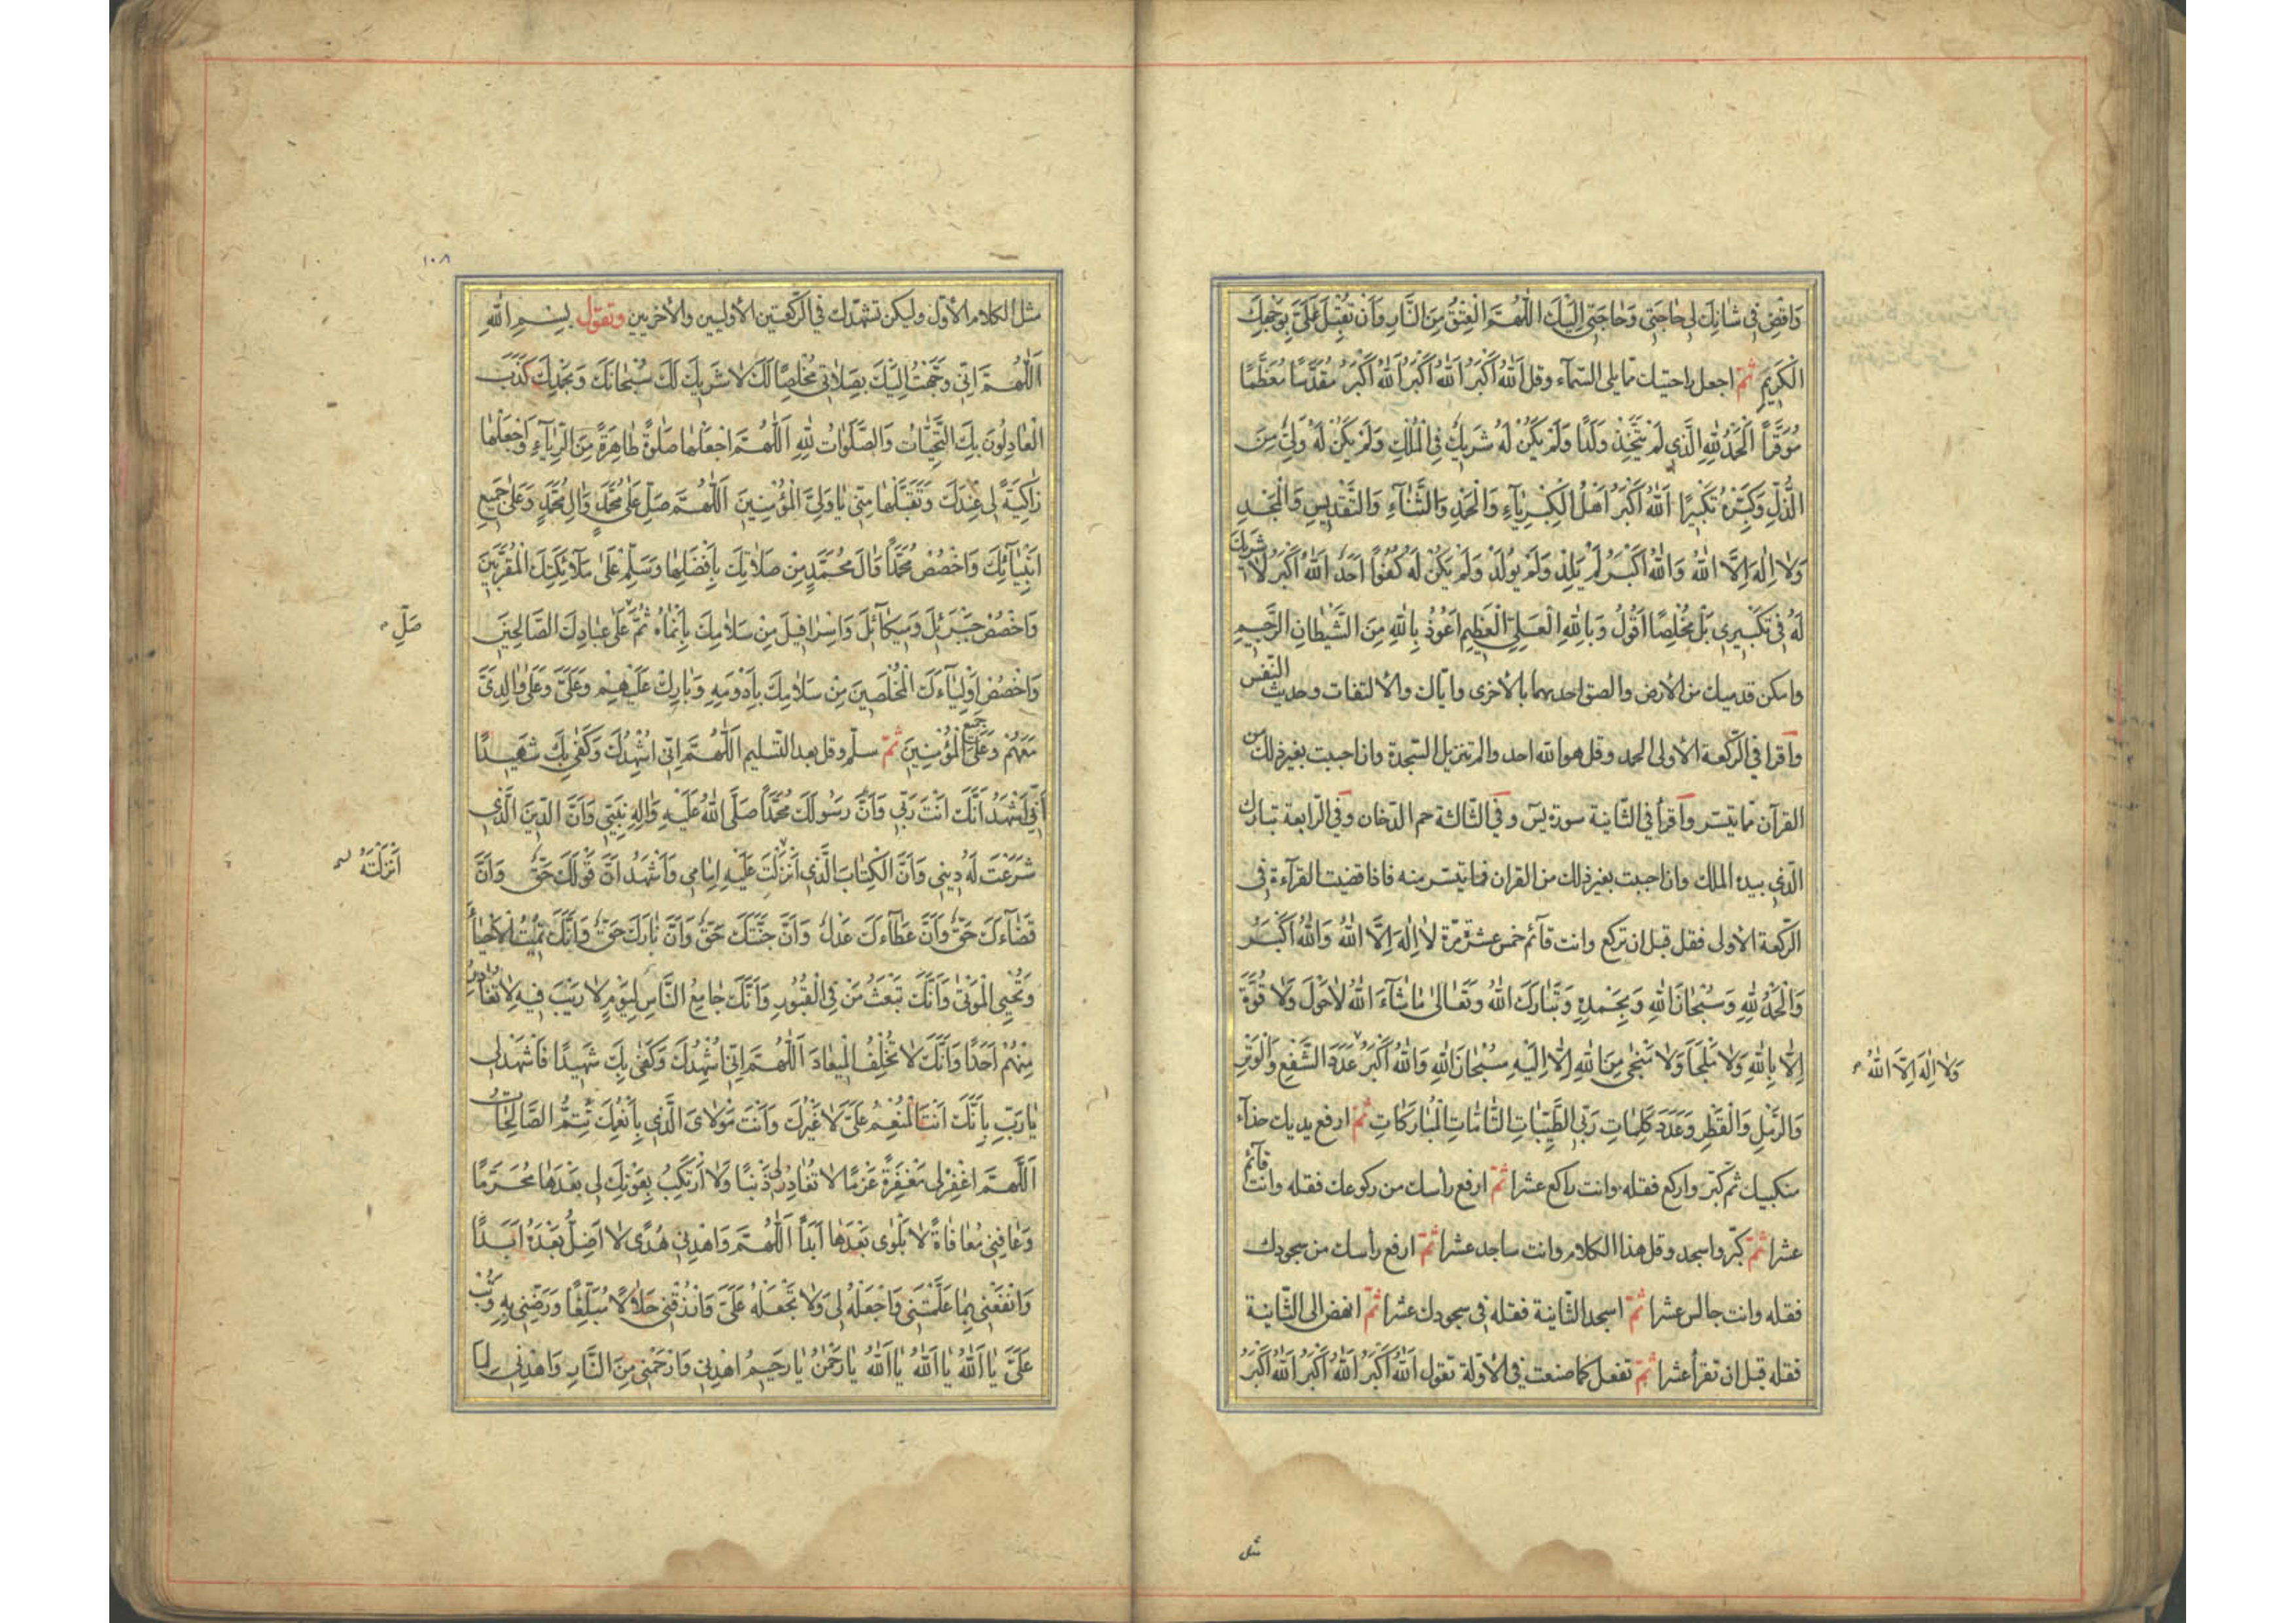 وَاقْضِ فِي شَانِكَ لِي حَاجَتِي وَحَاجَتِي اِلَيْكَ اَللّٰهُمَّ الْعِتْقُ مِنَ النَّارِ وَاَنْ تُقْبِلَ عَلَيَّ بِوَجْهِكَ
الْكَرِيمِ ثمّ اجعل راحتيك ممّا يلى السّمآء وقل اَللهُ اَكْبَرُ اَللهُ اَكْبَرُ اَللهُ اَكْبَرُ مُقَدَّسًا مُعَظَّمًا
مُوَقَّرًا اَلْحَمْدُ لِلّٰهِ الَّذِي لَمْ يَتَّخِذْ وَلَدًا وَلَمْ يَكُنْ لَهُ شَرِيكٌ فِي الْمُلْكِ وَلَمْ يَكُنْ لَهُ وَلِيٌّ مِنَ
الذُّلِّ وَكَبِّرْهُ تَكْبِيرًا اَللهُ اَكْبَرُ اَهْلُ الْكِبْرِيَآءِ وَالْحَمْدِ وَالثَّنَآءِ وَالتَّقْدِيسِ وَالْمَجْدِ
وَلَا اِلٰهَ اِلَّا اللهُ وَاللهُ اَكْبَرُ لَمْ يَلِدْ وَلَمْ يُولَدْ وَلَمْ يَكُنْ لَهُ كُفُوًا اَحَدٌ اَللهُ اَكْبَرُ لَا شَرِيكَ
لَهُ فِي تَكْبِيرِي بَلْ مُخْلِصًا اَقُولُ وَبِاللهِ الْعَلِيِّ الْعَظِيمِ اَعُوذُ بِاللهِ مِنَ الشَّيْطَانِ الرَّجِيمِ
وامكن قدميك من الأرض والصق احديهما بالأخرى وايّاك والالتفات وحديث النّفس
واقرا فى الرّكعة الأولى الحمد وقل هو الله احد والم تنزيل السّجدة وان احببت بغير ذلك من
القرآن ممّا تيسّر واقرأ فى الثّانية سورة يس وفى الثّالثة حم الدّخان وفى الرّابعة تبارك
الّذى بيده الملك وان احببت بغير ذلك من القران فما تيسّر منه فاذا قضيت القرآءة فى
الرّكعة الأولى فقل قبل ان تركع وانت قآئم خمس عشرة مرّة لَا اِلٰهَ اِلَّا اللهُ وَاللهُ اَكْبَرُ
وَالْحَمْدُ لِلّٰهِ وَسُبْحَانَ اللهِ وَبِحَمْدِهِ وَتَبَارَكَ اللهُ وَتَعَالٰى مَا شَآءَ اللهُ لَا حَوْلَ وَلَا قُوَّةَ
اِلَّا بِاللهِ وَلَا مَلْجَاَ وَلَا مَنْجٰى مِنَ اللهِ اِلَّا اِلَيْهِ سُبْحَانَ اللهِ وَاللهُ اَكْبَرُ عَدَدَ الشَّفْعِ وَالْوَتْرِ
وَلَا اِلٰهَ اِلَّا اللهُ
وَالرَّمْلِ وَالْقَطْرِ وَعَدَدَ كَلِمَاتِ رَبِّي الطَّيِّبَاتِ التَّامَّاتِ الْمُبَارَكَاتِ ثمّ ارفع يديك حذآء
منكبيك ثمّ كبّر واركع فقله وانت راكع عشرا ثمّ ارفع رأسك من ركوعك فقله وانت قآئم
عشرا ثمّ كبّر واسجد وقل هذا الكلام وانت ساجد عشرا ثمّ ارفع رأسك من سجودك
فقله وانت جالس عشرا ثمّ اسجد الثّانية فقله فى سجودك عشرا ثمّ انهض الى الثّانية
فقله قبل ان تقرأ عشرا ثمّ تفعل كما صنعت فى الأوّلة تقول اَللهُ اَكْبَرُ اَللهُ اَكْبَرُ اَللهُ اَكْبَرُ
مثل
١٠٨
مثل الكلام الأوّل وليكن تشهّدك فى الرّكعتين الأوليين والأخريين وتقول بِسْمِ اللهِ
اَللّٰهُمَّ اِنِّي وَجَّهْتُ اِلَيْكَ بِصَلَاتِي مُخْلِصًا لَكَ لَا شَرِيكَ لَكَ سُبْحَانَكَ وَبِحَمْدِكَ كَذَبَ
الْعَادِلُونَ بِكَ التَّحِيَّاتُ وَالصَّلَوَاتُ لِلّٰهِ اَللّٰهُمَّ اجْعَلْهَا صَلٰوةً طَاهِرَةً مِنَ الرِّيَآءِ وَاجْعَلْهَا
زَاكِيَةً لِي عِنْدَكَ وَتَقَبَّلْهَا مِنِّي يَا وَلِيَّ الْمُؤْمِنِينَ اَللّٰهُمَّ صَلِّ عَلٰى مُحَمَّدٍ وَاٰلِ مُحَمَّدٍ وَعَلٰى جَمِيعِ
اَنْبِيَآئِكَ وَاخْصُصْ مُحَمَّدًا وَاٰلَ مُحَمَّدٍ مِنْ صَلَاتِكَ بِاَفْضَلِهَا وَسَلِّمْ عَلٰى مَلَآئِكَتِكَ الْمُقَرَّبِينَ
وَاخْصُصْ جَبْرَئِلَ وَمِيكَآئِلَ وَاِسْرَافِيلَ مِنْ سَلَامِكَ بِاَنْمَاهُ ثُمَّ عَلٰى عِبَادِكَ الصَّالِحِينَ
صَلِّ
وَاخْصُصْ اَوْلِيَآءَكَ الْمُخْلَصِينَ مِنْ سَلَامِكَ بِاَدْوَمِهِ وَبَارِكْ عَلَيْهِمْ وَعَلَيَّ وَعَلٰى وَالِدَيَّ
مَعَهُمْ وَعَلٰى جَمِيعِ الْمُؤْمِنِينَ ثمّ سلّم وقل بعد التّسليم اَللّٰهُمَّ اِنِّي اُشْهِدُكَ وَكَفٰى بِكَ شَهِيدًا
اَنِّي اَشْهَدُ اَنَّكَ اَنْتَ رَبِّي وَاَنَّ رَسُولَكَ مُحَمَّدًا صَلَّى اللهُ عَلَيْهِ وَاٰلِهِ نَبِيِّي وَاَنَّ الدِّينَ الَّذِي
شَرَعْتَ لَهُ دِينِي وَاَنَّ الْكِتَابَ الَّذِي اَنْزَلْتَ عَلَيْهِ اِمَامِي وَاَشْهَدُ اَنَّ قَوْلَكَ حَقٌّ وَاَنَّ
اَنْزَلْتَهُ
قَضَآءَكَ حَقٌّ وَاَنَّ عَطَآءَكَ عَدْلٌ وَاَنَّ جَنَّتَكَ حَقٌّ وَاَنَّ نَارَكَ حَقٌّ وَاَنَّكَ تُمِيتُ الْاَحْيَآءَ
وَتُحْيِي الْمَوْتٰى وَاَنَّكَ تَبْعَثُ مَنْ فِي الْقُبُورِ وَاَنَّكَ جَامِعُ النَّاسِ لِيَوْمٍ لَا رَيْبَ فِيهِ لَا تُغَادِرُ
مِنْهُمْ اَحَدًا وَاَنَّكَ لَا تُخْلِفُ الْمِيعَادَ اَللّٰهُمَّ اِنِّي اُشْهِدُكَ وَكَفٰى بِكَ شَهِيدًا فَاشْهَدْ لِي
يَا رَبِّ بِاَنَّكَ اَنْتَ الْمُنْعِمُ عَلَيَّ لَا غَيْرُكَ وَاَنْتَ مَوْلَايَ الَّذِي بِاَنْعُمِكَ تَتِمُّ الصَّالِحَاتُ
اَللّٰهُمَّ اغْفِرْ لِي مَغْفِرَةً عَزْمًا لَا تُغَادِرُ لِي ذَنْبًا وَلَا اَرْتَكِبُ بِعَوْنِكَ لِي بَعْدَهَا مُحَرَّمًا
وَعَافِنِي مُعَافَاةً لَا بَلْوٰى بَعْدَهَا اَبَدًا اَللّٰهُمَّ وَاهْدِنِي هُدًى لَا اَضِلُّ بَعْدَهُ اَبَدًا
وَانْفَعْنِي بِمَا عَلَّمْتَنِي وَاجْعَلْهُ لِي وَلَا تَجْعَلْهُ عَلَيَّ وَارْزُقْنِي حَلَالًا مُبَلِّغًا وَرَضِّنِي بِهِ وَتُبْ
عَلَيَّ يَا اَللهُ يَا اَللهُ يَا اَللهُ يَا رَحْمٰنُ يَا رَحِيمُ اهْدِنِي وَارْحَمْنِي مِنَ النَّارِ وَاهْدِنِي لِمَا